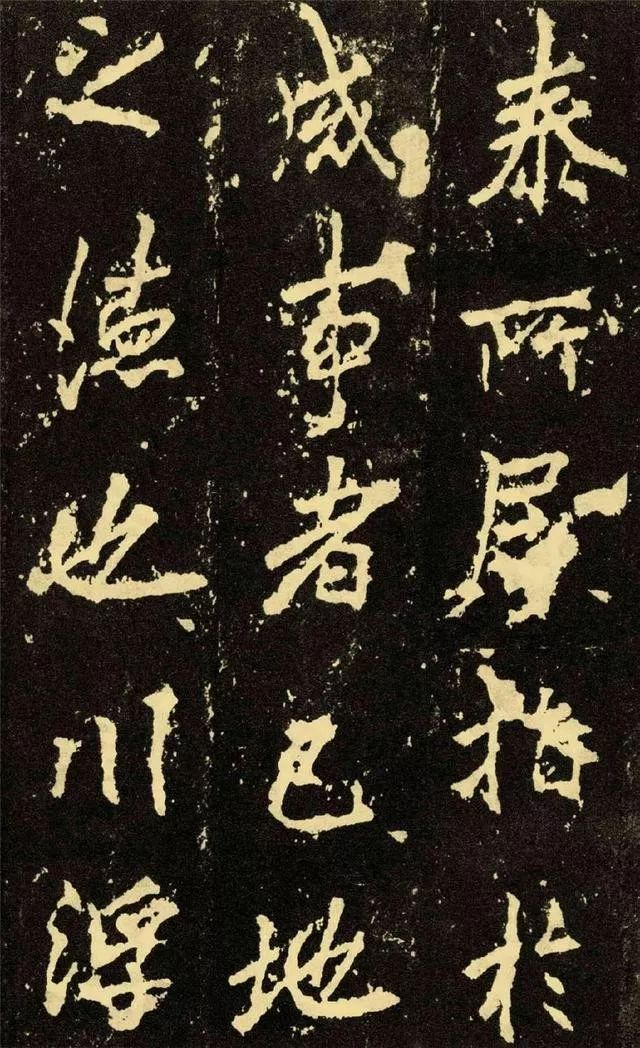 泰所居指於
成事者已地
之德也川浮